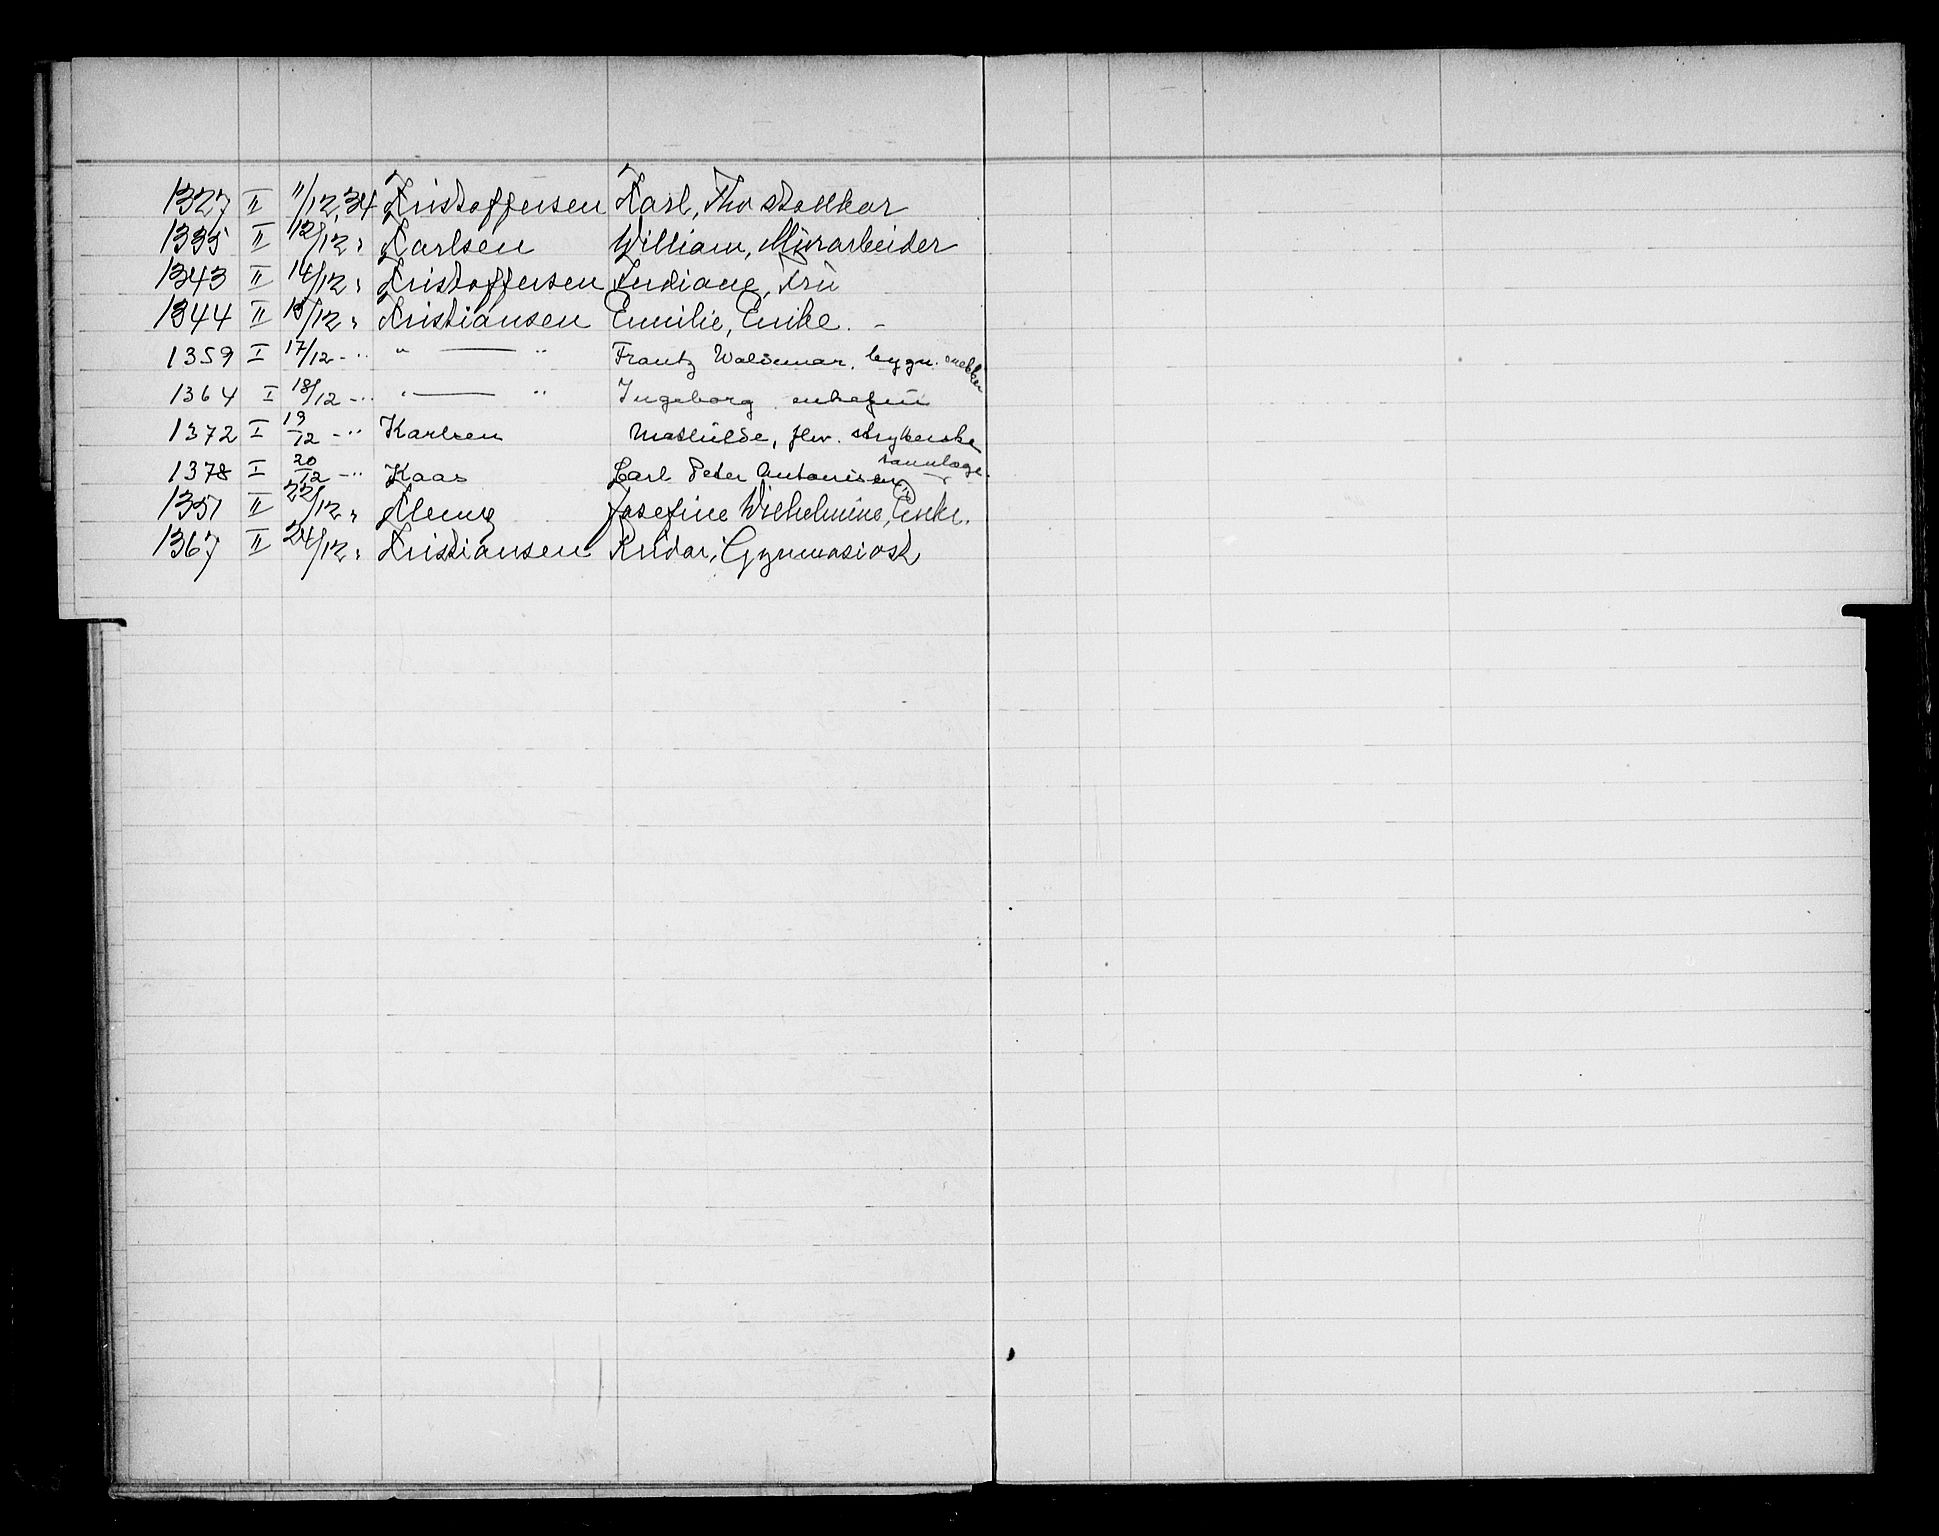 1327 II 11/12,34 Kristoffersen Karl,
1335 II 12/12 " Karlsen William, Murarbeider
1343 II 14/12 " Kristoffersen Indiane, Fru
1344 II 15/12 " Kristiansen Emilie, Enke. -
1359 I 17/12 - " " — " Frantz Waldemar. bygn. snekker
1364 I 18/12 - " " — " Ingeborg enkefru
1372 I 19/12 - " Karlsen Mathilde, fhv. strykerske
1378 I 20/12 - " Kaas Carl Peter Antonisen tannlæge
II 22/12 " Josefine Wilhelmine, Enke.
1367 II 24/12 " Kristiansen Reidar, Gymnasiast